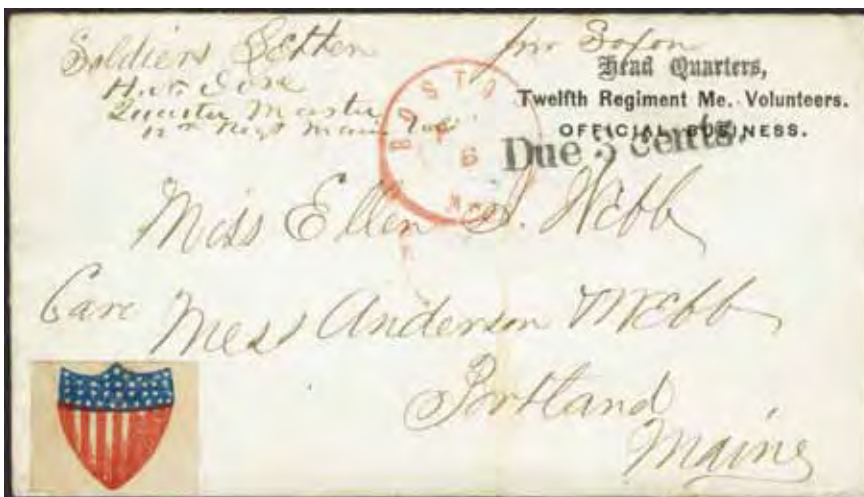 Soldiers Letter
per Saxon
Quarter Master
12th Regt Maine Vol
Head Quarters,
Twelfth Regiment Me. Volunteers.
OFFICIAL BUSINESS.
BOSTO
6
Due 3 cents.
Miss Ellen Webb
Care Mess Anderson Webb
Portland
Maine